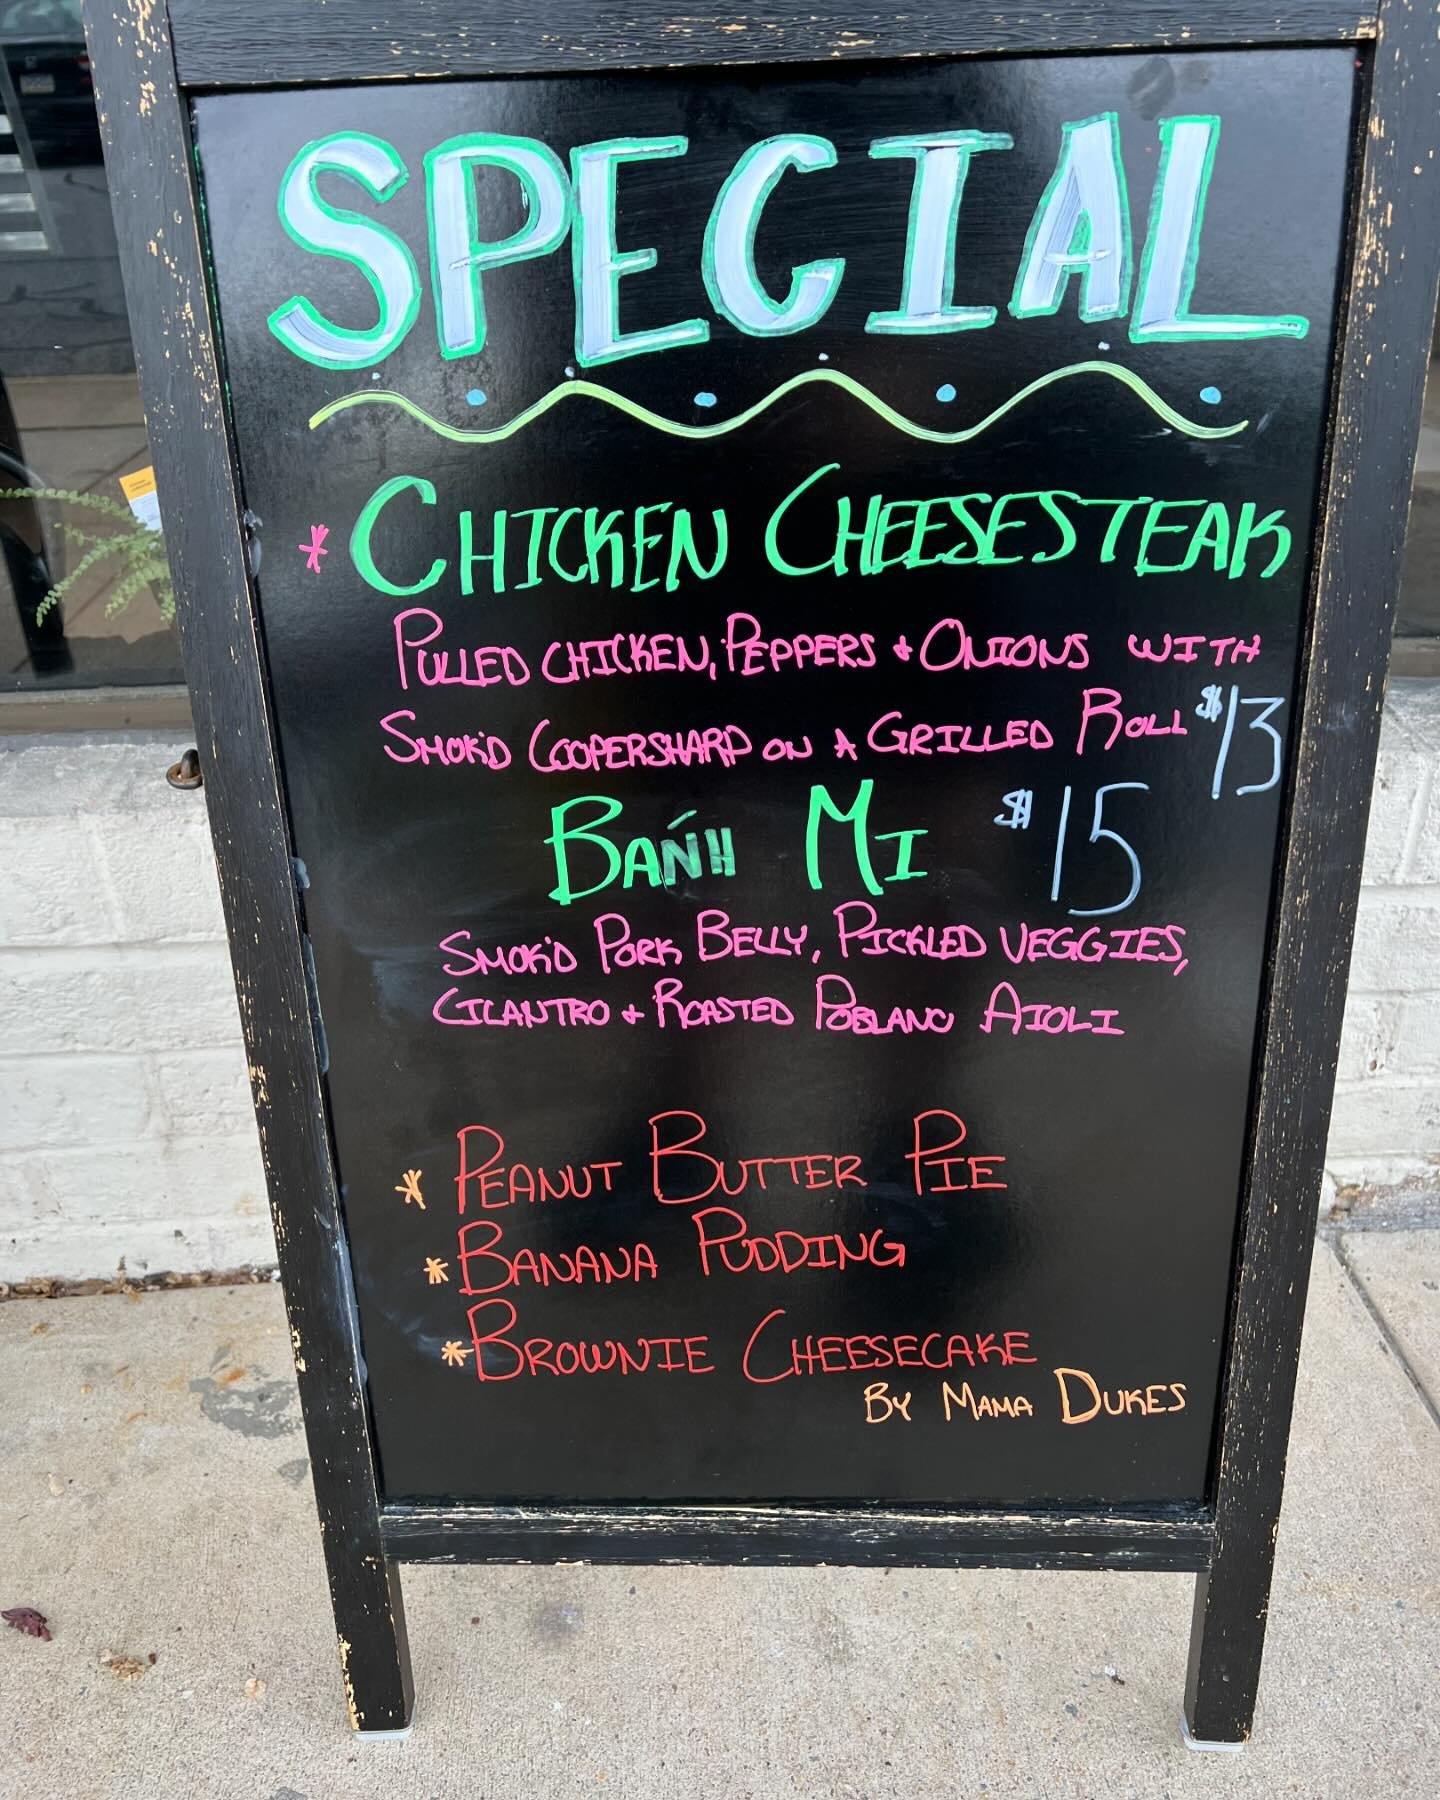 SPECIAL
* CHICKEN CHEESESTEAK
PULLED CHICKEN, PEPPERS + ONIONS WITH
SMOK'D COOPERSHARP ON A GRILLED ROLL $13
BAŃH MI $15
SMOK'D PORK BELLY, PICKLED VEGGIES,
CILANTRO + ROASTED POBLANO AIOLI
* PEANUT BUTTER PIE
* BANANA PUDDING
* BROWNIE CHEESECAKE
BY MAMA DUKES